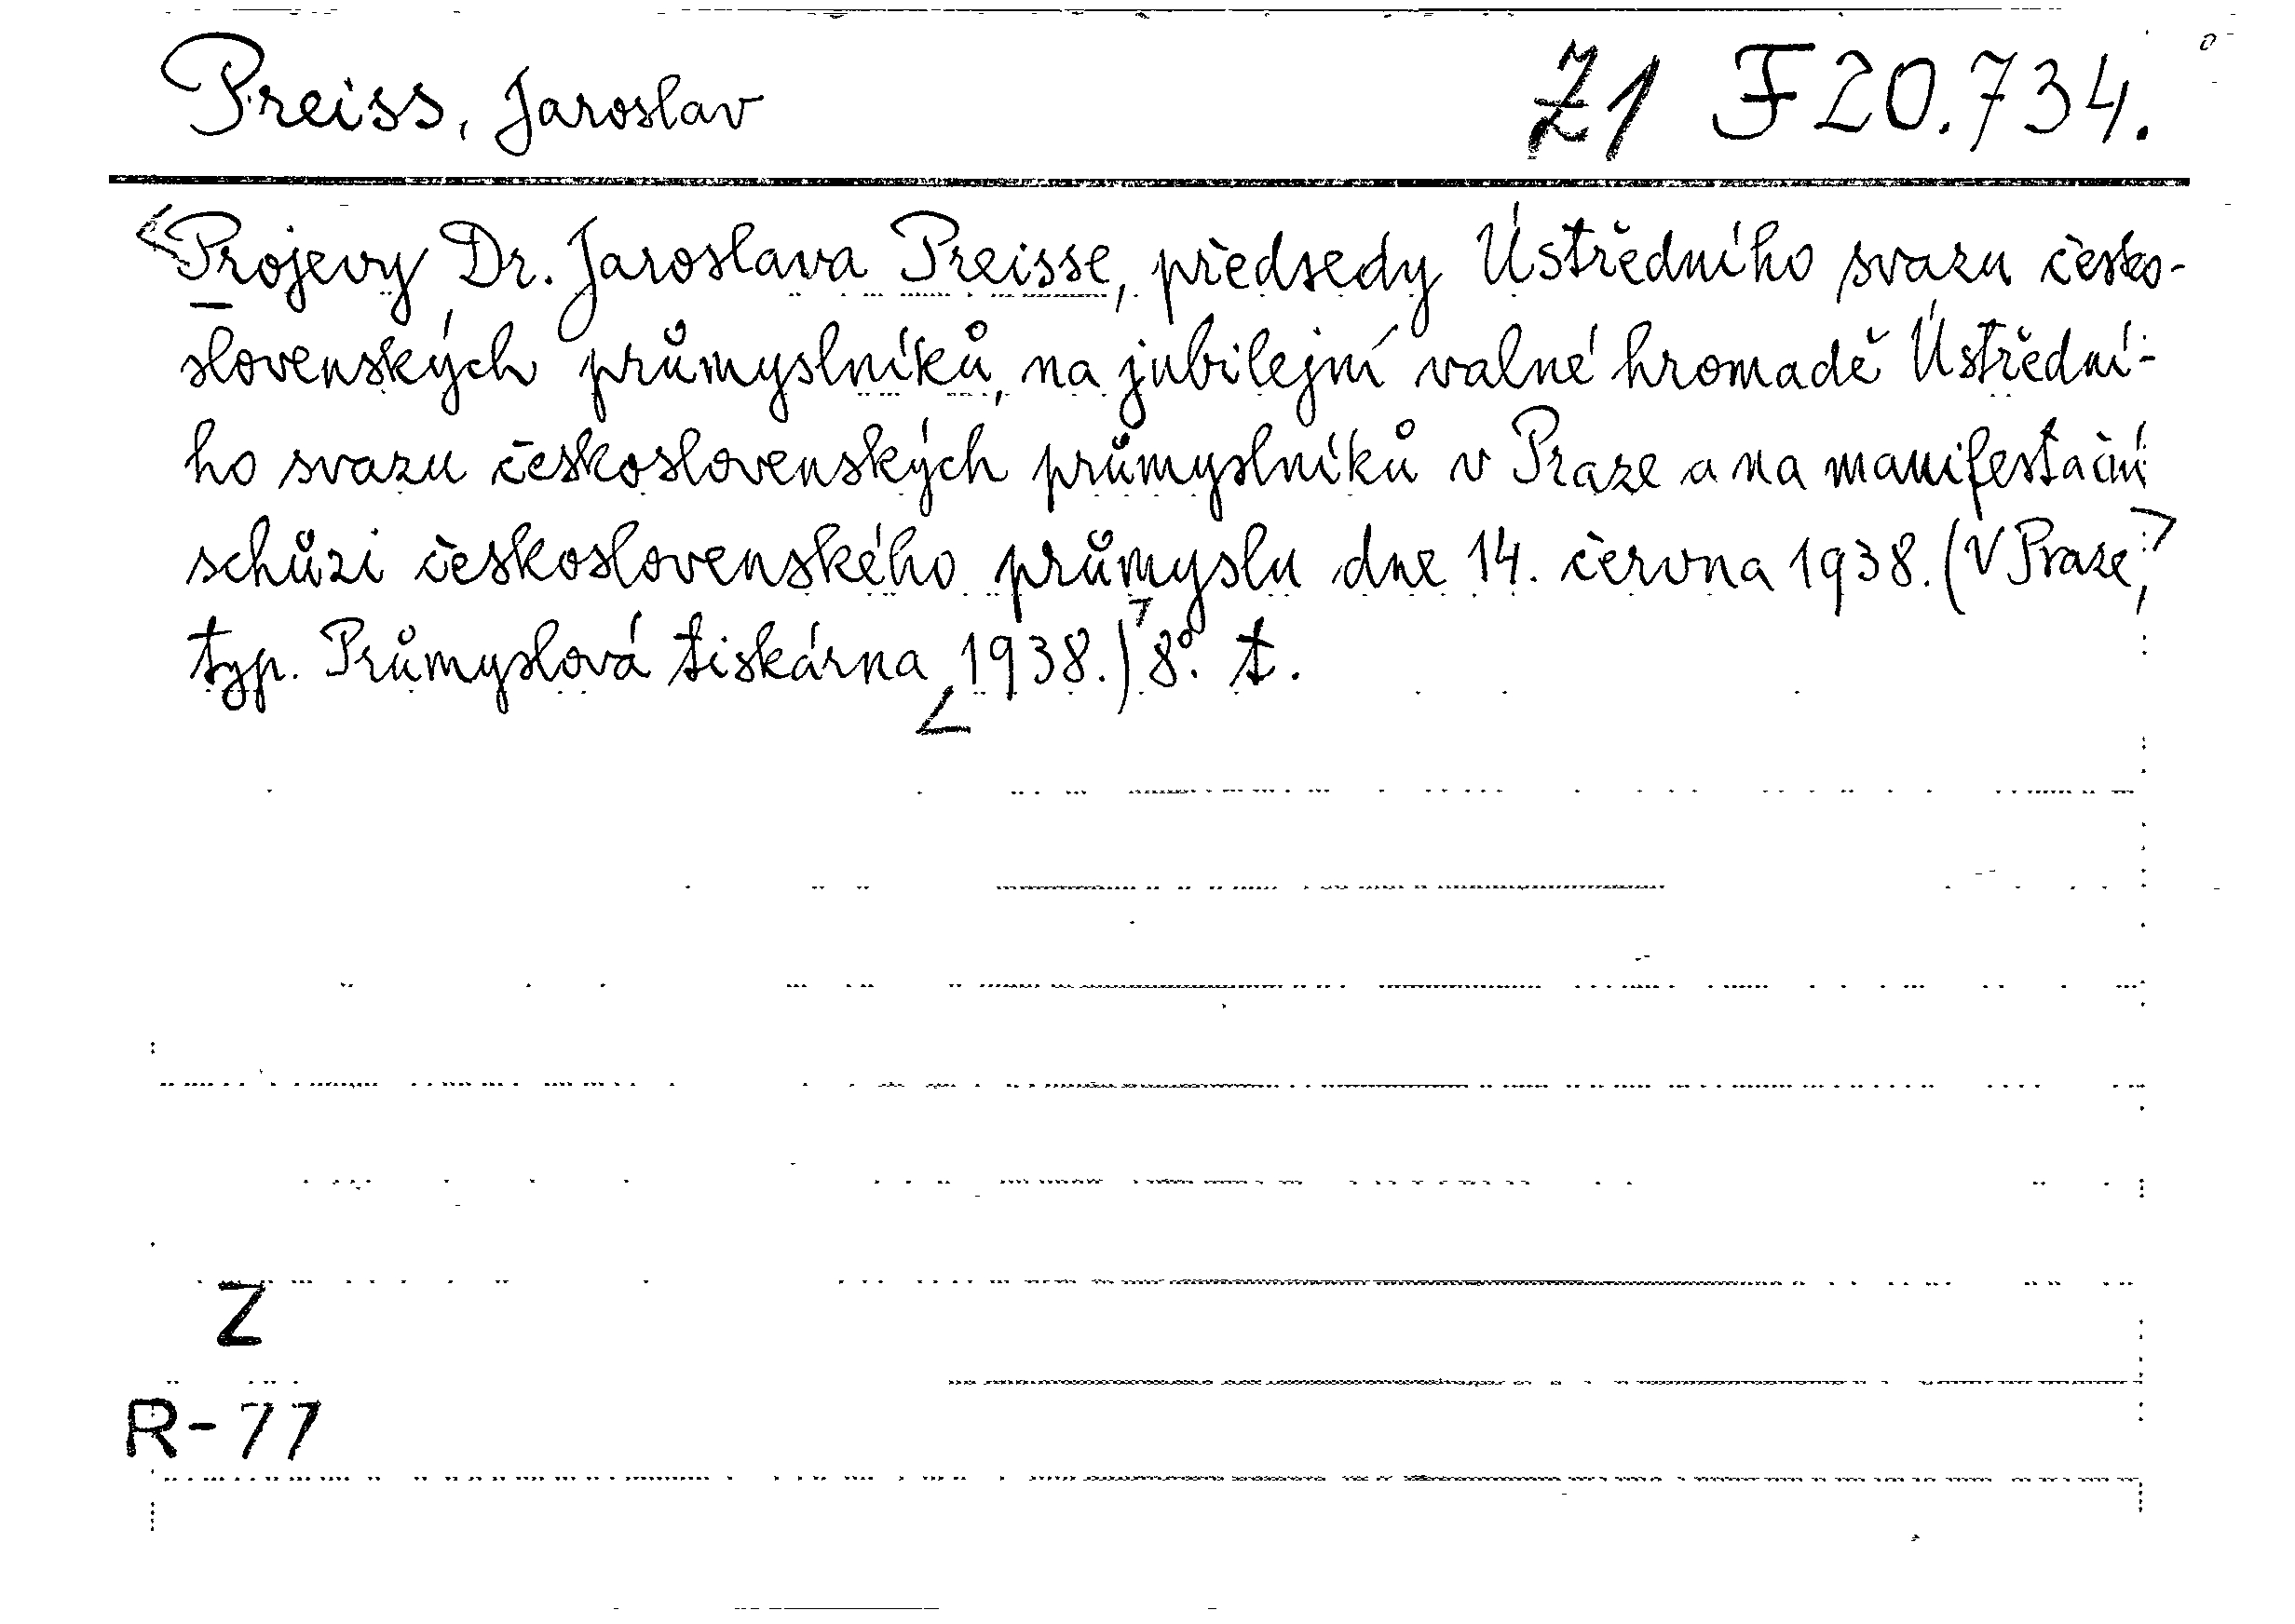 Preiss, Jaroslav Z1 F 20.734.
Projevy Dr. Jaroslava Preisse, předsedy Ústředního svazu česko-
slovenských průmyslníků, na jubilejní valné hromadě Ústřední-
ho svazu československých průmyslníků v Praze a na manifestační
schůzi československého průmyslu dne 14. června 1938. (V Praze,
typ. Průmyslová tiskárna, 1938.) 8°. t.
Z
R-77